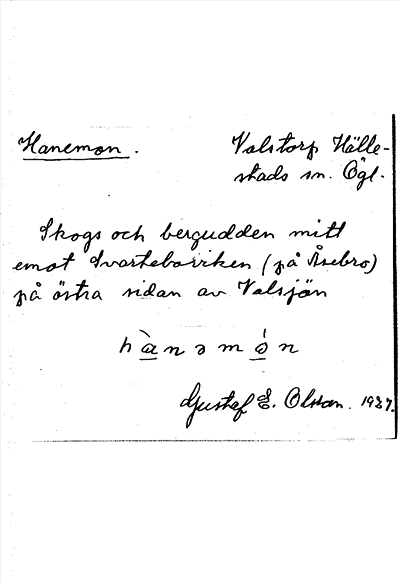 Hanemon.
Valstorp Hälle-
stads sn. Ögl.
Skogs och bergudden mitt
emot Svarteborriken (på Åsebro)
på östra sidan av Valsjön
hànəmón
Gustaf E. Olsson. 1937.